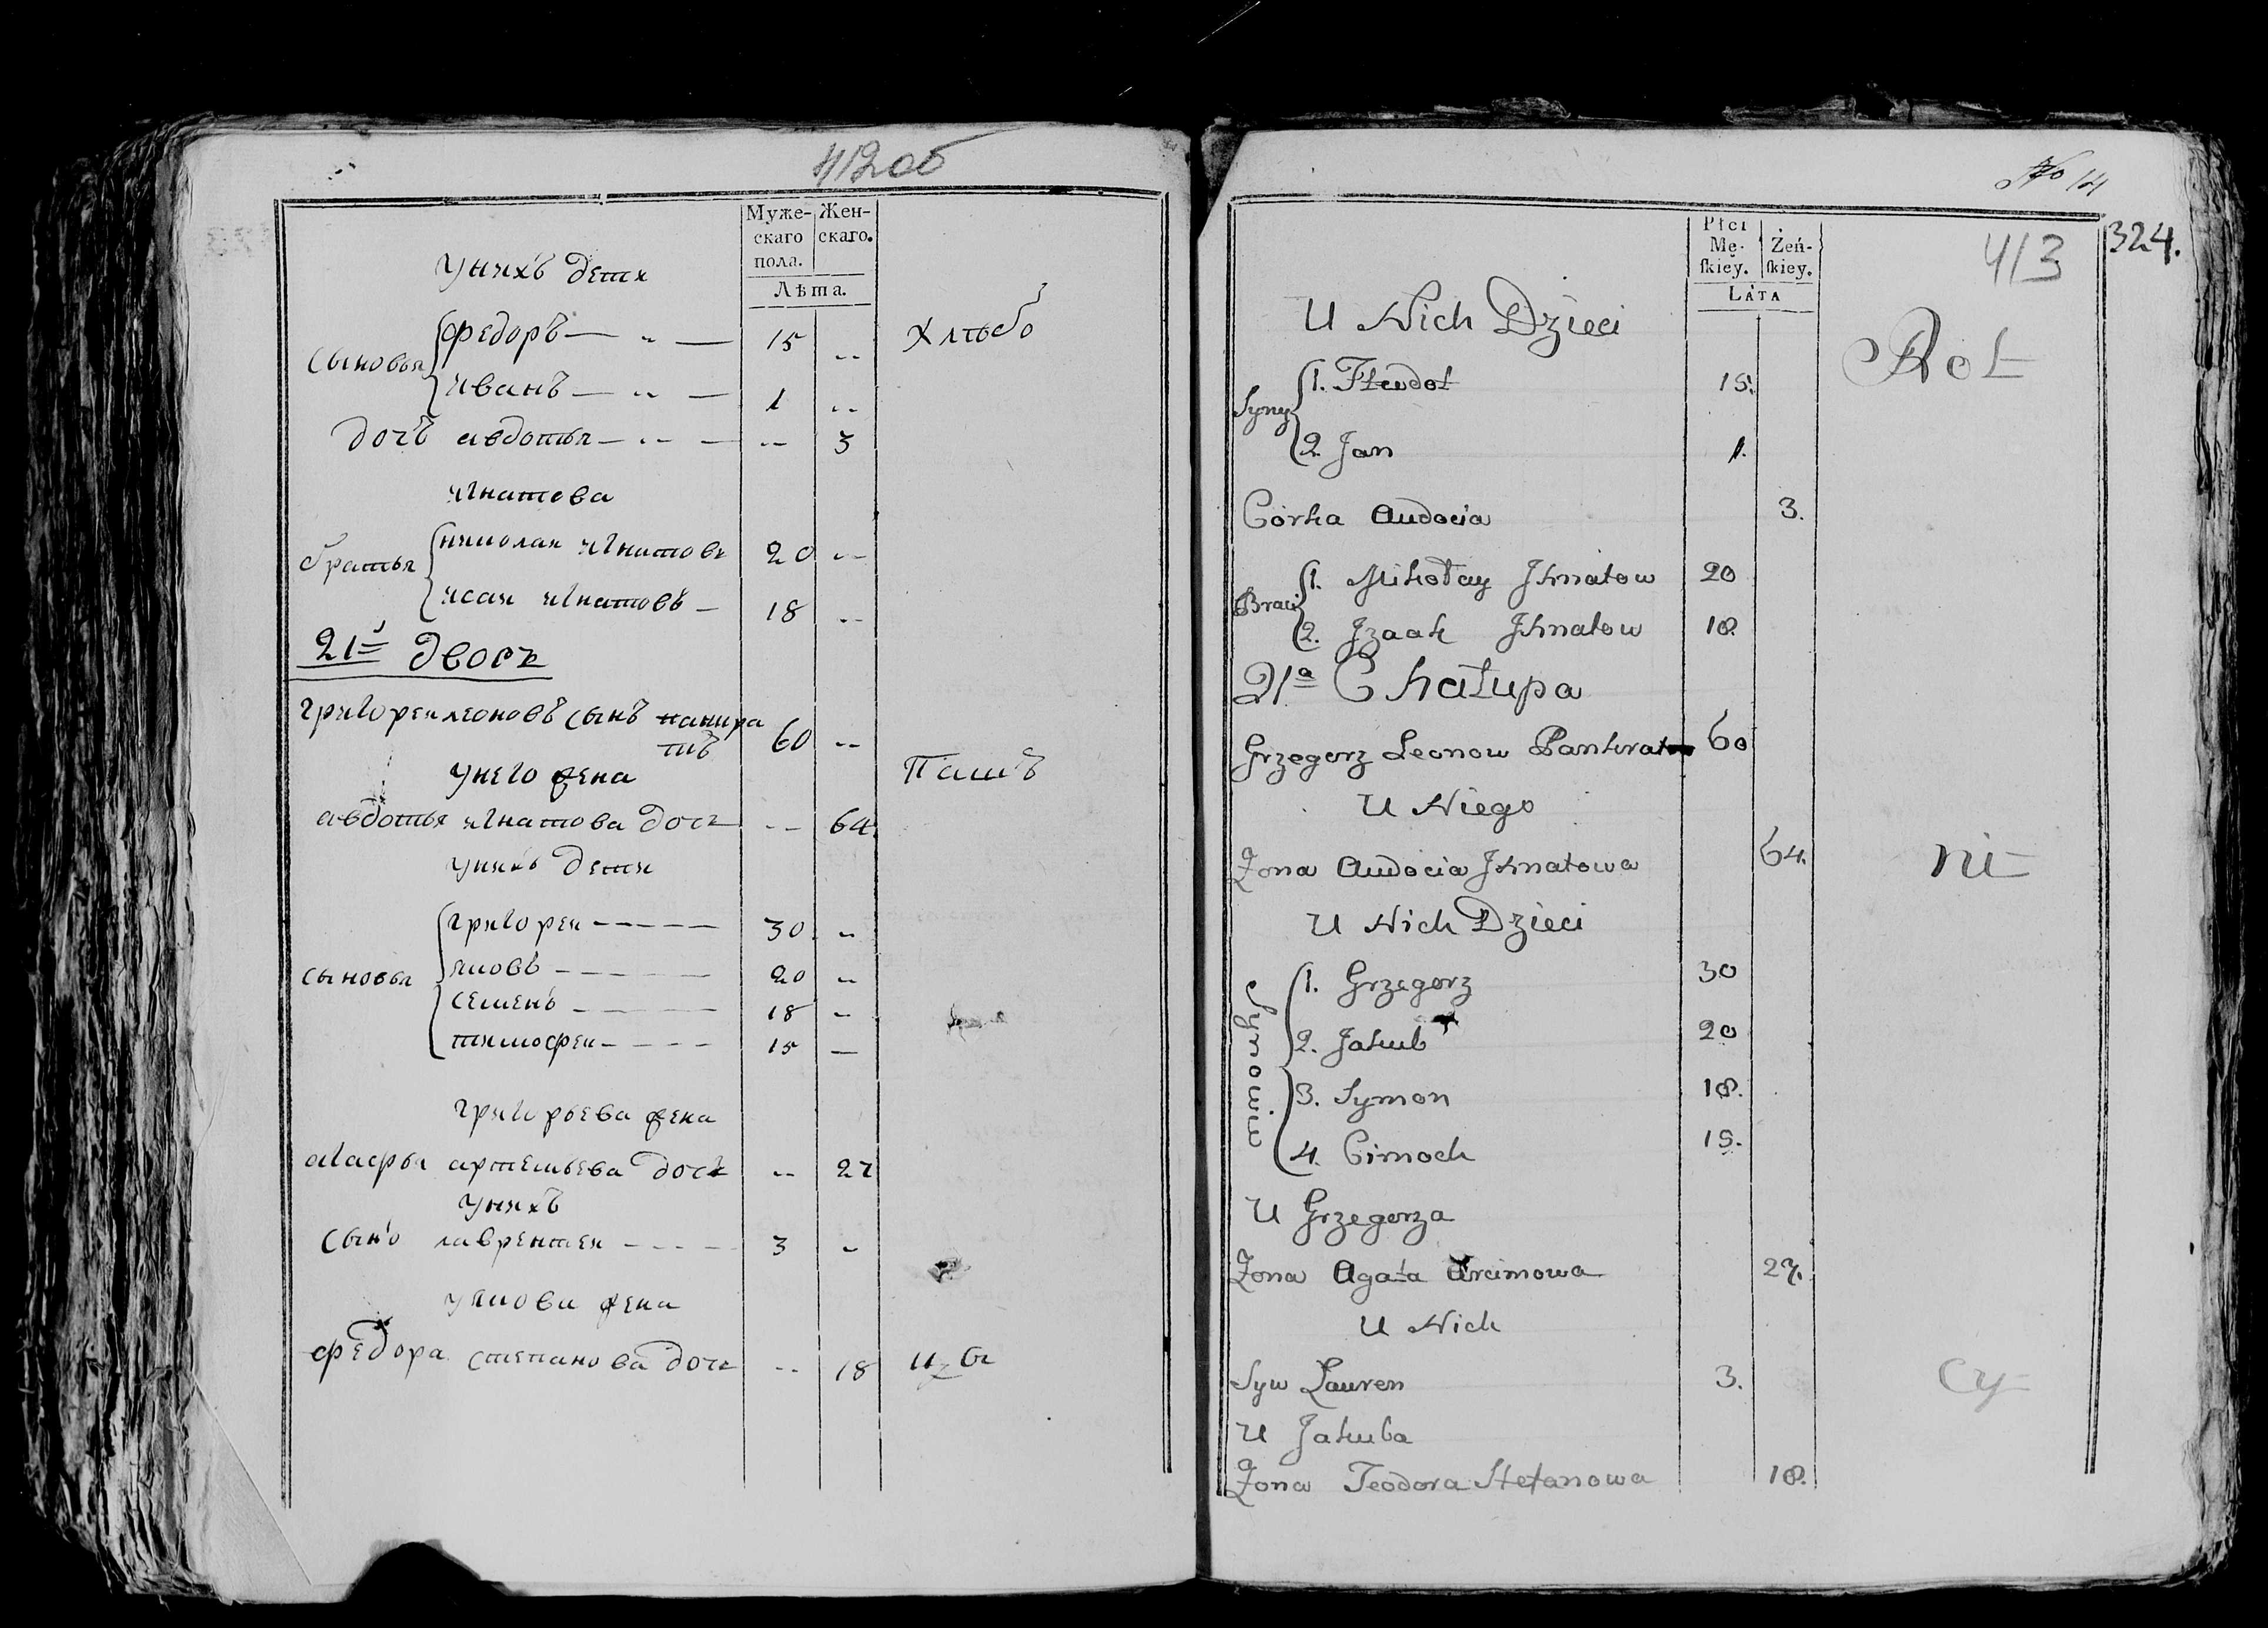 412об
Муже-
скаго
пола.
Жен-
скаго.
Лѣта.
унихъ дети
сыновья
федоръ — „ — 15 „
иванъ — „ — 1 „
хлѣбо
дочъ авдотья — „ — „ 3
игнатова
братья
николаи игнатовъ 20 „
исаи игнатовъ — 18 „
21й дворъ
григореи леоновъ сынъ панкра
тъ 60 „
унего жена
пашъ
авдотья игнатова дочь „ 64
унихъ дети
сыновья
григореи — 30 „
яковъ — 20 „
семенъ — 18 „
тимофеи — 15 —
григорьева жена
агафья артемьева дочь „ 27
унихъ
сынъ лаврентеи — 3 „
якова жена
федора степанова дочь „ 18
No 14
324.
413
Płci
Mę-
skiey.
Żeń-
skiey.
LATA
U Nich Dzieci
Rol
Syny
1. Fteodot 15.
2. Jan 1.
Córka Audocia 3.
Braci
1. Mikołay Jhnatow 20
2. Jzaak Jhnatow 18.
21a Chałupa
Grzegorz Leonow Pankratow 60
U Niego
Żona Audocia Jhnatowa 64.
ni
U Nich Dzieci
Synowie
1. Grzegorz 30
2. Jakub 20
3. Symon 18.
4. Cimoch 15.
U Grzegorza
Żona Agata Arcimowa 27.
U Nich
Syn Lauren 3.
cy
U Jakuba
Żona Teodora Stefanowa 18.